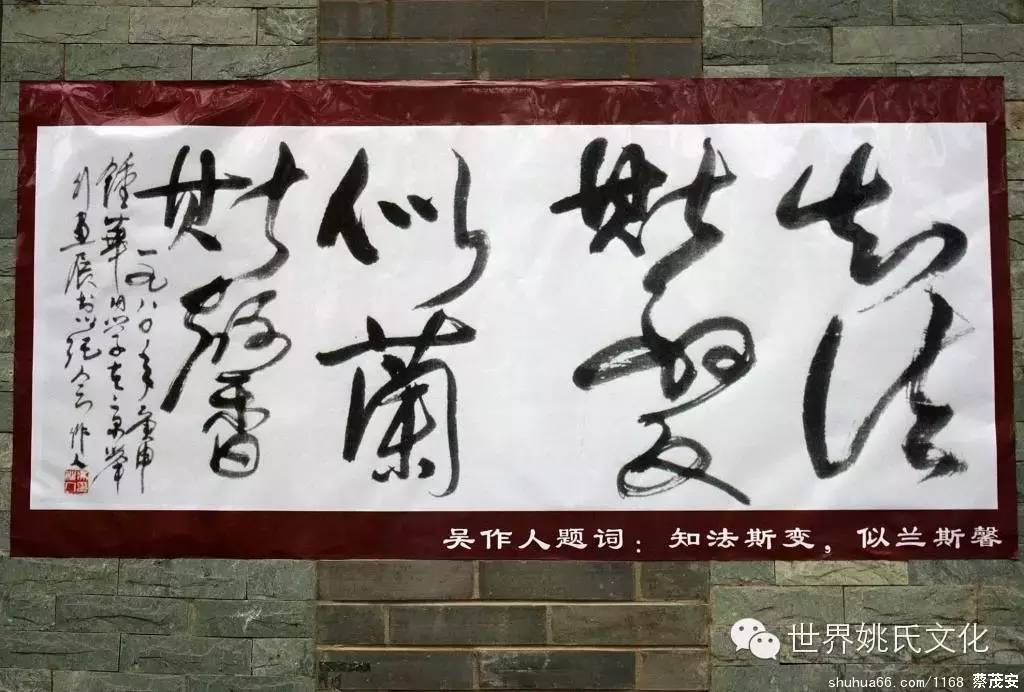 知法
斯變
似蘭
斯馨
一九八〇年庚申
鍾華同學在京舉
行畫展書以紀念 作人
吴作人题词：知法斯变，似兰斯馨
世界姚氏文化
shuhua66.com/1168 蔡茂安